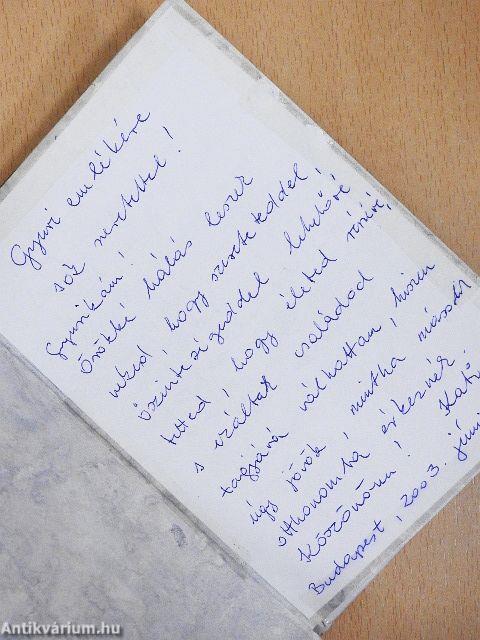 Gyuri emlékére
sok szeretettel!
Gyurikám!
Örökké hálás leszek
neked, hogy szereteteddel,
őszinteségeddel lehetővé
tetted, hogy életed részévé,
s ezáltal családod
tagjává válhattam, hiszen
úgy jövök, mintha második
otthonomba érkeznék.
Köszönöm! Kati
Budapest, 2003.
Antikvárium.hu